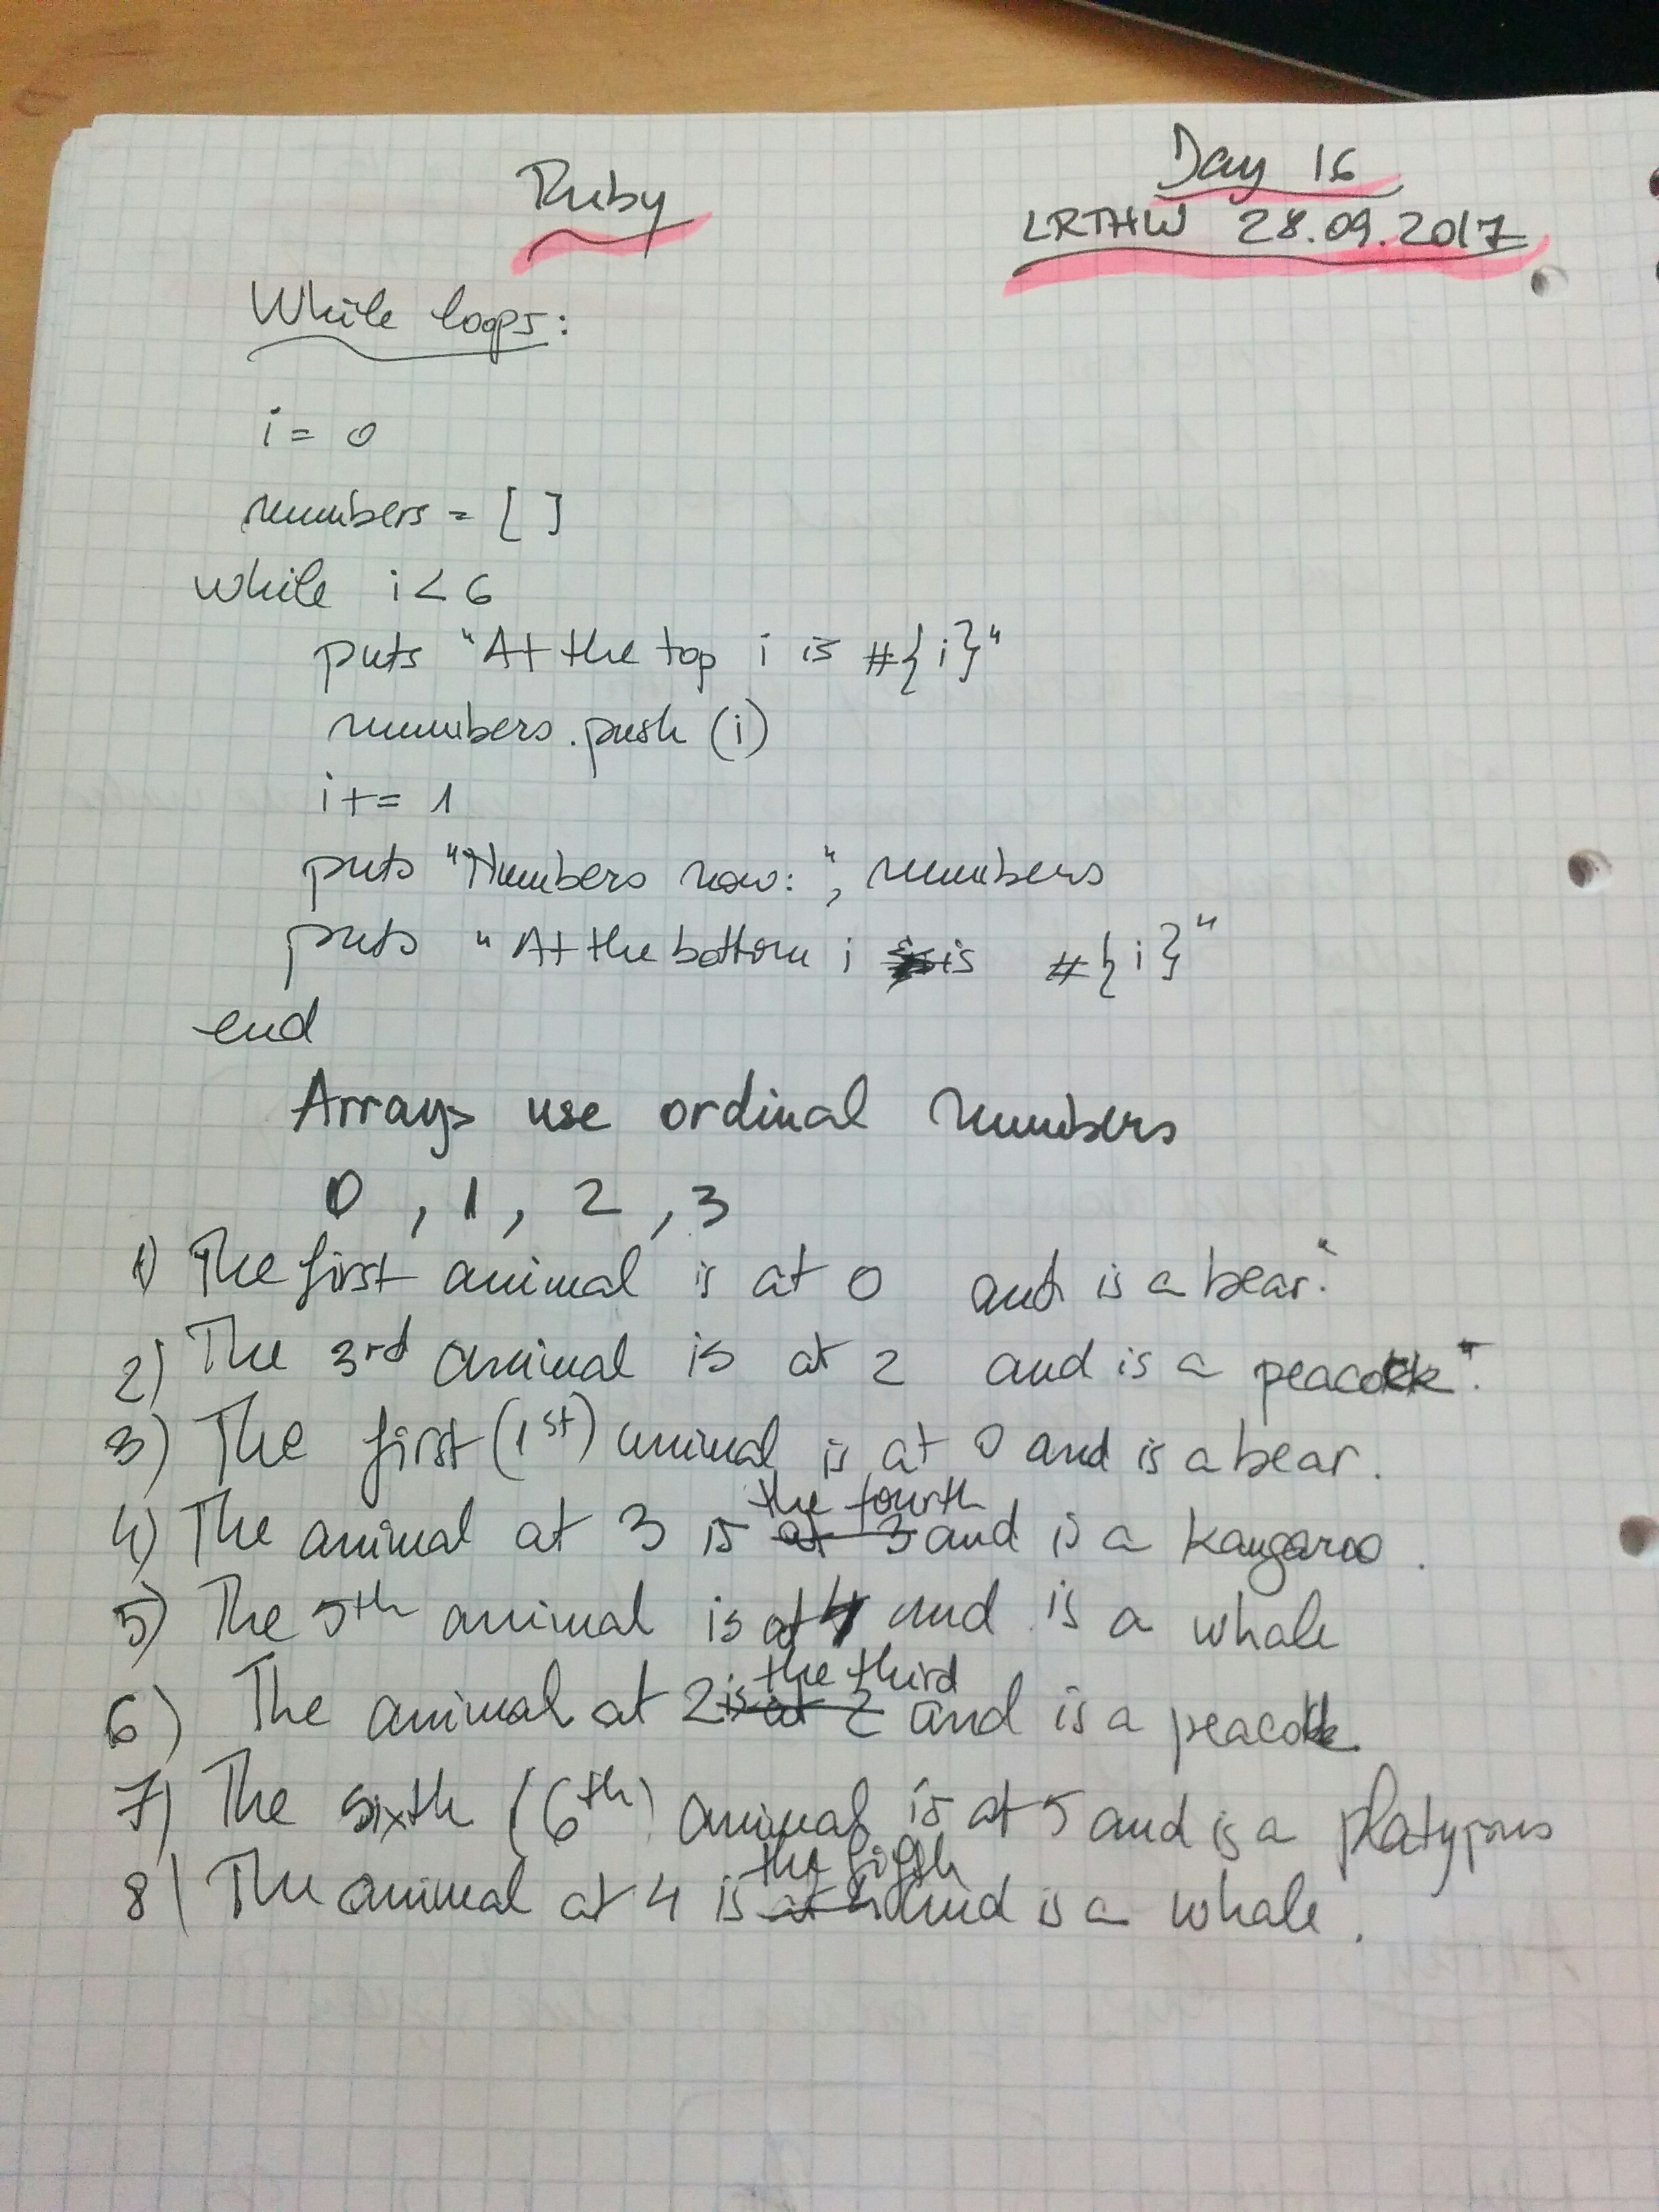 Ruby
Day 16
LRTHW 28.09.2017
While loops:
i = 0
numbers = [ ]
while i < 6
puts "At the top i is #{i}"
numbers.push (i)
i += 1
puts "Numbers now: ", numbers
puts "At the bottom i is #{i}"
end
Arrays use ordinal numbers
0, 1, 2, 3
1) The first animal is at 0 and is a bear."
2) The 3rd animal is at 2 and is a peacock".
3) The first (1st) animal is at 0 and is a bear.
4) The animal at 3 is the fourth and is a kangaroo.
5) The 5th animal is at 4 and is a whale
6) The animal at 2 is the third and is a peacock.
7) The sixth (6th) animal is at 5 and is a platypus
8) The animal at 4 is the fifth and is a whale.